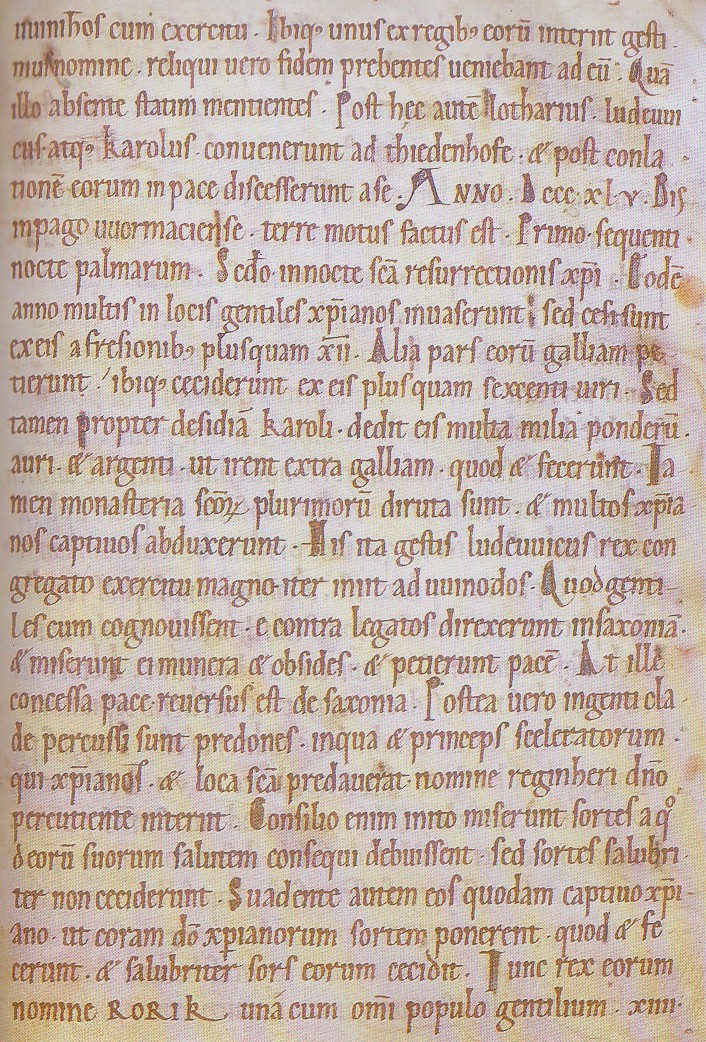 inimicos cum exercitu · Ibiq; unus ex regib; eorū interiit gesti
mus nomine · reliqui uero fidem prebentes ueniebant ad eū · Quā
illo absente statim mentientes · Post hec autē Hlotharius · ludeuui
cus · atq; karolus · conuenerunt ad thiedenhofe · & post conla
tionē eorum in pace discesserunt a se · ANNO · Dccc·xlv· Bis
in pago uuormaciense · terre motus factus est · Primo · sequenti ·
nocte palmarum · Scdo · in nocte scā resurrectionis xp̄i · Eodē
anno multis in locis gentiles xp̄ianos inuaserunt · sed cesi sunt
ex eis a fresionib; plusquam xii · Alia pars eorū galliam pe
tierunt · ibiq; ceciderunt ex eis plusquam sexcenti uiri · Sed
tamen propter desidiā karoli · dedit eis multa milia ponderū ·
auri · & argenti · ut irent extra galliam · quod & fecerunt · Ta
men monasteria scōꝝ plurimorū diruta sunt · & multos xp̄ia
nos captiuos abduxerunt · His ita gestis ludeuuicus rex con
gregato exercitu magno · iter iniit ad uuinodos · Quod genti
les cum cognouissent · e contra legatos direxerunt in saxoniā ·
& miserunt ei munera & obsides · & petierunt pacē · At ille
concessa pace · reuersus est de saxonia · Postea uero ingenti cla
de percussi sunt predones · in qua & princeps sceleratorum ·
qui xp̄ianos · & loca scā predauerat · nomine reginheri dn̄o
percutiente interiit · Consilio enim inito miserunt sortes a qͦ
deorū suorum salutem consequi debuissent · sed sortes salubri
ter non ceciderunt · Suadente autem eos quodam captiuo xp̄i
ano · ut coram dō xp̄ianorum sortem ponerent · quod & fe
cerunt · & salubriter sors eorum cecidit · Tunc rex eorum
nomine RORIK · unā cum om̄i populo gentilium · xiiii ·